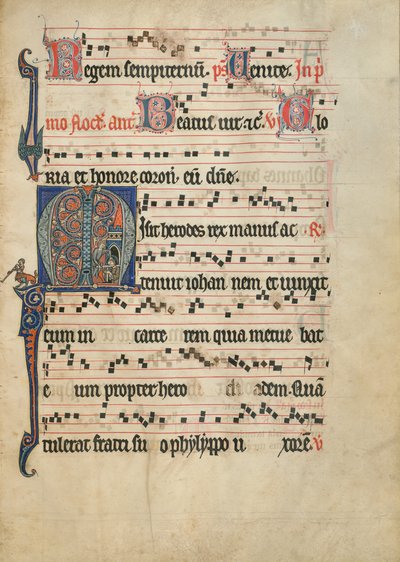 Regem sempiternū. ps̄ Uenite. In p̄
mo noct̄. ant̄. Beatus uir. ⁊c̄. V̄ Glo
ria et honore coron̄. eū dn̄e.
Misit herodes rex manus ac R̄.
tenuit iohan nem et uinxit
eum in carce rem quia metue bat
e um propter hero di adem. Quā
tulerat fratri su o phylyppo u xorē. V̄